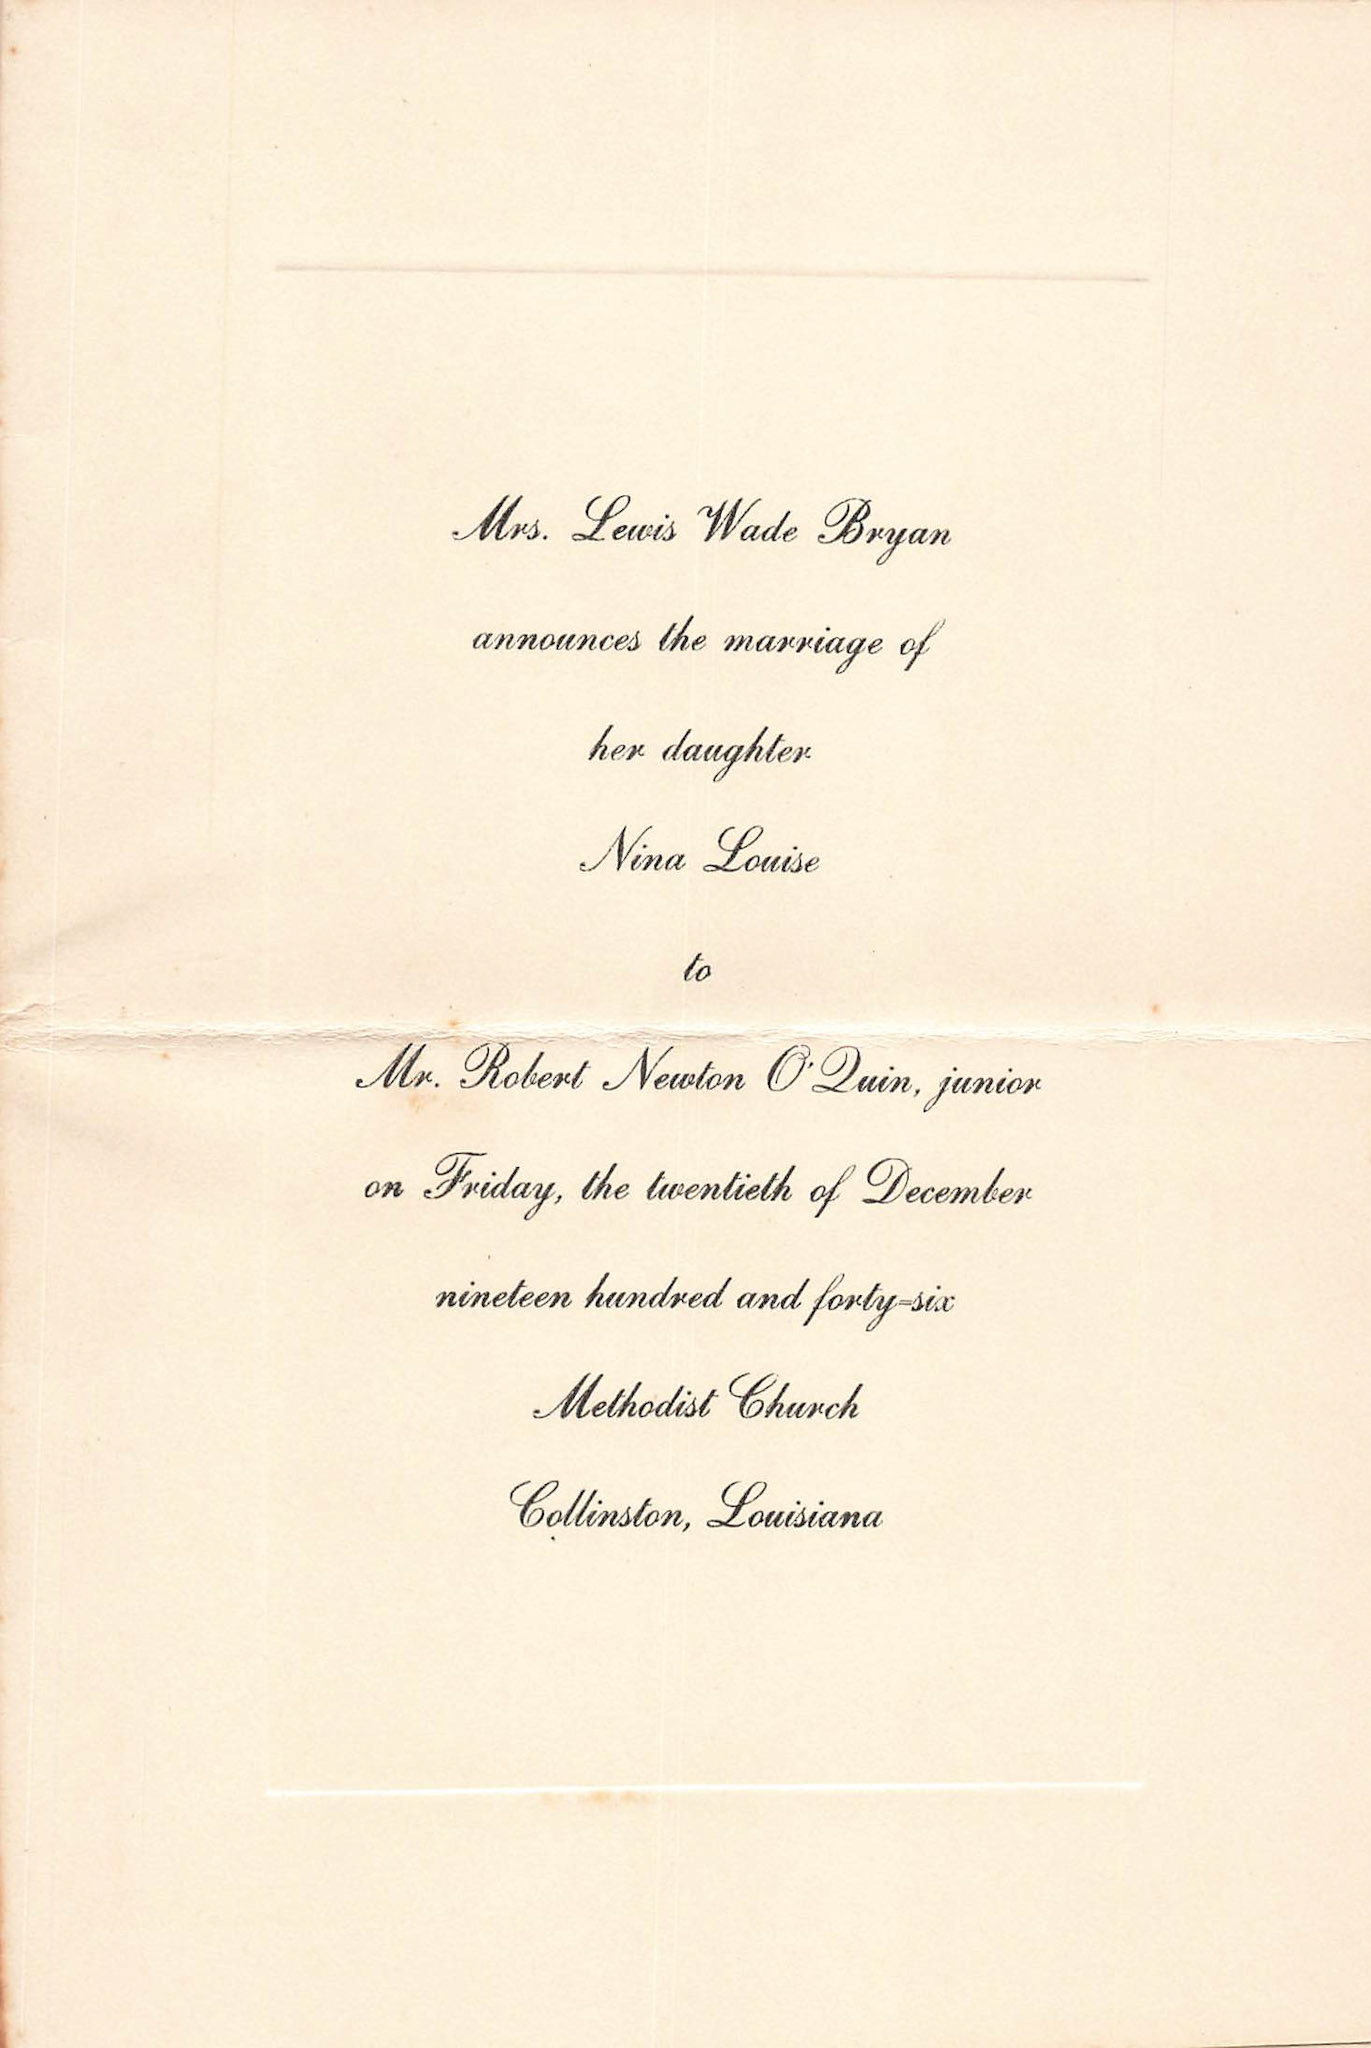 Mrs. Lewis Wade Bryan
announces the marriage of
her daughter
Nina Louise
to
Mr. Robert Newton O'Quin, junior
on Friday, the twentieth of December
nineteen hundred and forty-six
Methodist Church
Collinston, Louisiana